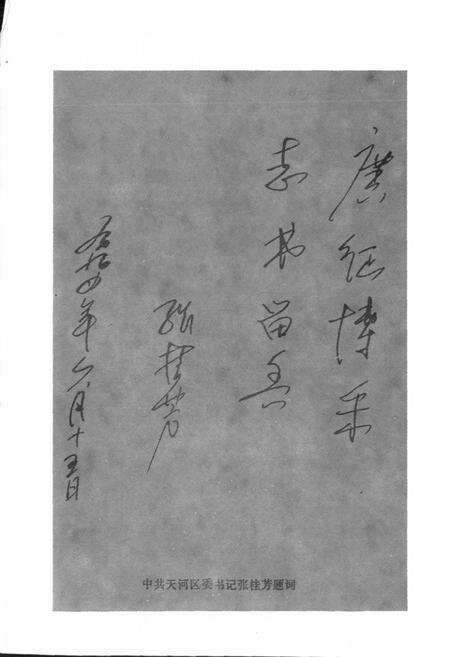 廣征博采
志书留香
张桂芳
九四年六月十五日
中共天河区委书记张桂芳题词